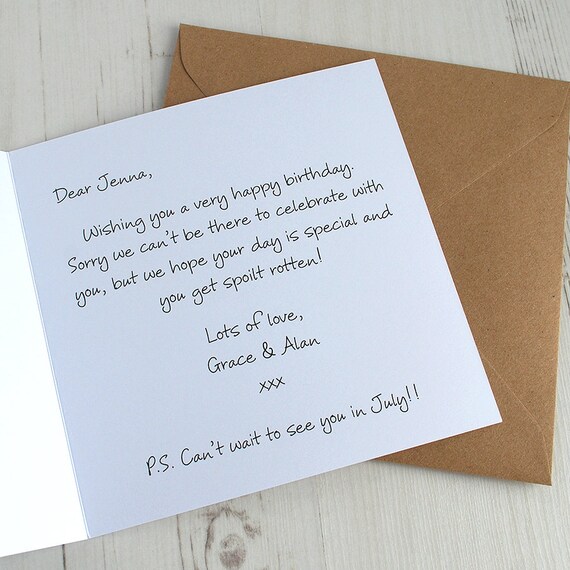 Dear Jenna,
Wishing you a very happy birthday.
Sorry we can't be there to celebrate with
you, but we hope your day is special and
you get spoilt rotten!
Lots of love,
Grace & Alan
xxx
P.S. Can't wait to see you in July!!